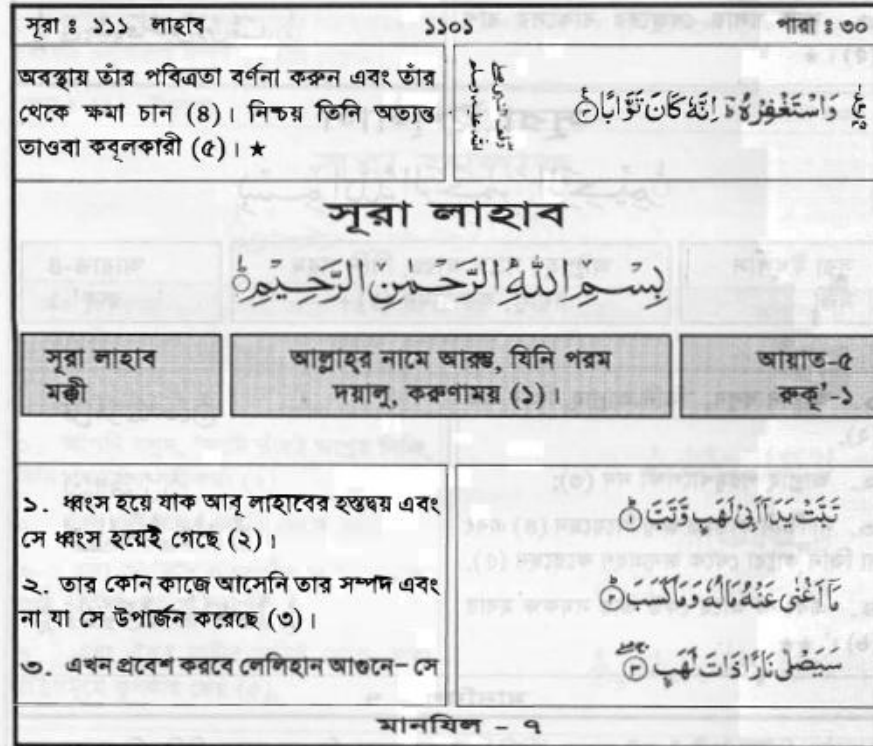 সূরা ঃ ১১১ লাহাব ১১০১ পারা ঃ ৩০
অবস্থায় তাঁর পবিত্রতা বর্ণনা করুন এবং তাঁর
থেকে ক্ষমা চান (৪)। নিশ্চয় তিনি অত্যন্ত
তাওবা কবূলকারী (৫)। ★
وَاسْتَغْفِرْهُ ؕ اِنَّهٗ كَانَ تَوَّابًا ﴿٣﴾
সূরা লাহাব
بِسْمِ اللّٰهِ الرَّحْمٰنِ الرَّحِيْمِ
সূরা লাহাব
মক্কী
আল্লাহ্‌র নামে আরম্ভ, যিনি পরম
দয়ালু, করুণাময় (১)।
আয়াত-৫
রুকূ'-১
১. ধ্বংস হয়ে যাক আবূ লাহাবের হস্তদ্বয় এবং
সে ধ্বংস হয়েই গেছে (২)।
২. তার কোন কাজে আসেনি তার সম্পদ এবং
না যা সে উপার্জন করেছে (৩)।
৩. এখন প্রবেশ করবে লেলিহান আগুনে– সে
تَبَّتْ يَدَاۤ اَبِيْ لَهَبٍ وَّتَبَّ ﴿١﴾
مَاۤ اَغْنٰى عَنْهُ مَالُهٗ وَمَا كَسَبَ ﴿٢﴾
سَيَصْلٰى نَارًا ذَاتَ لَهَبٍ ﴿٣﴾
মানযিল – ৭